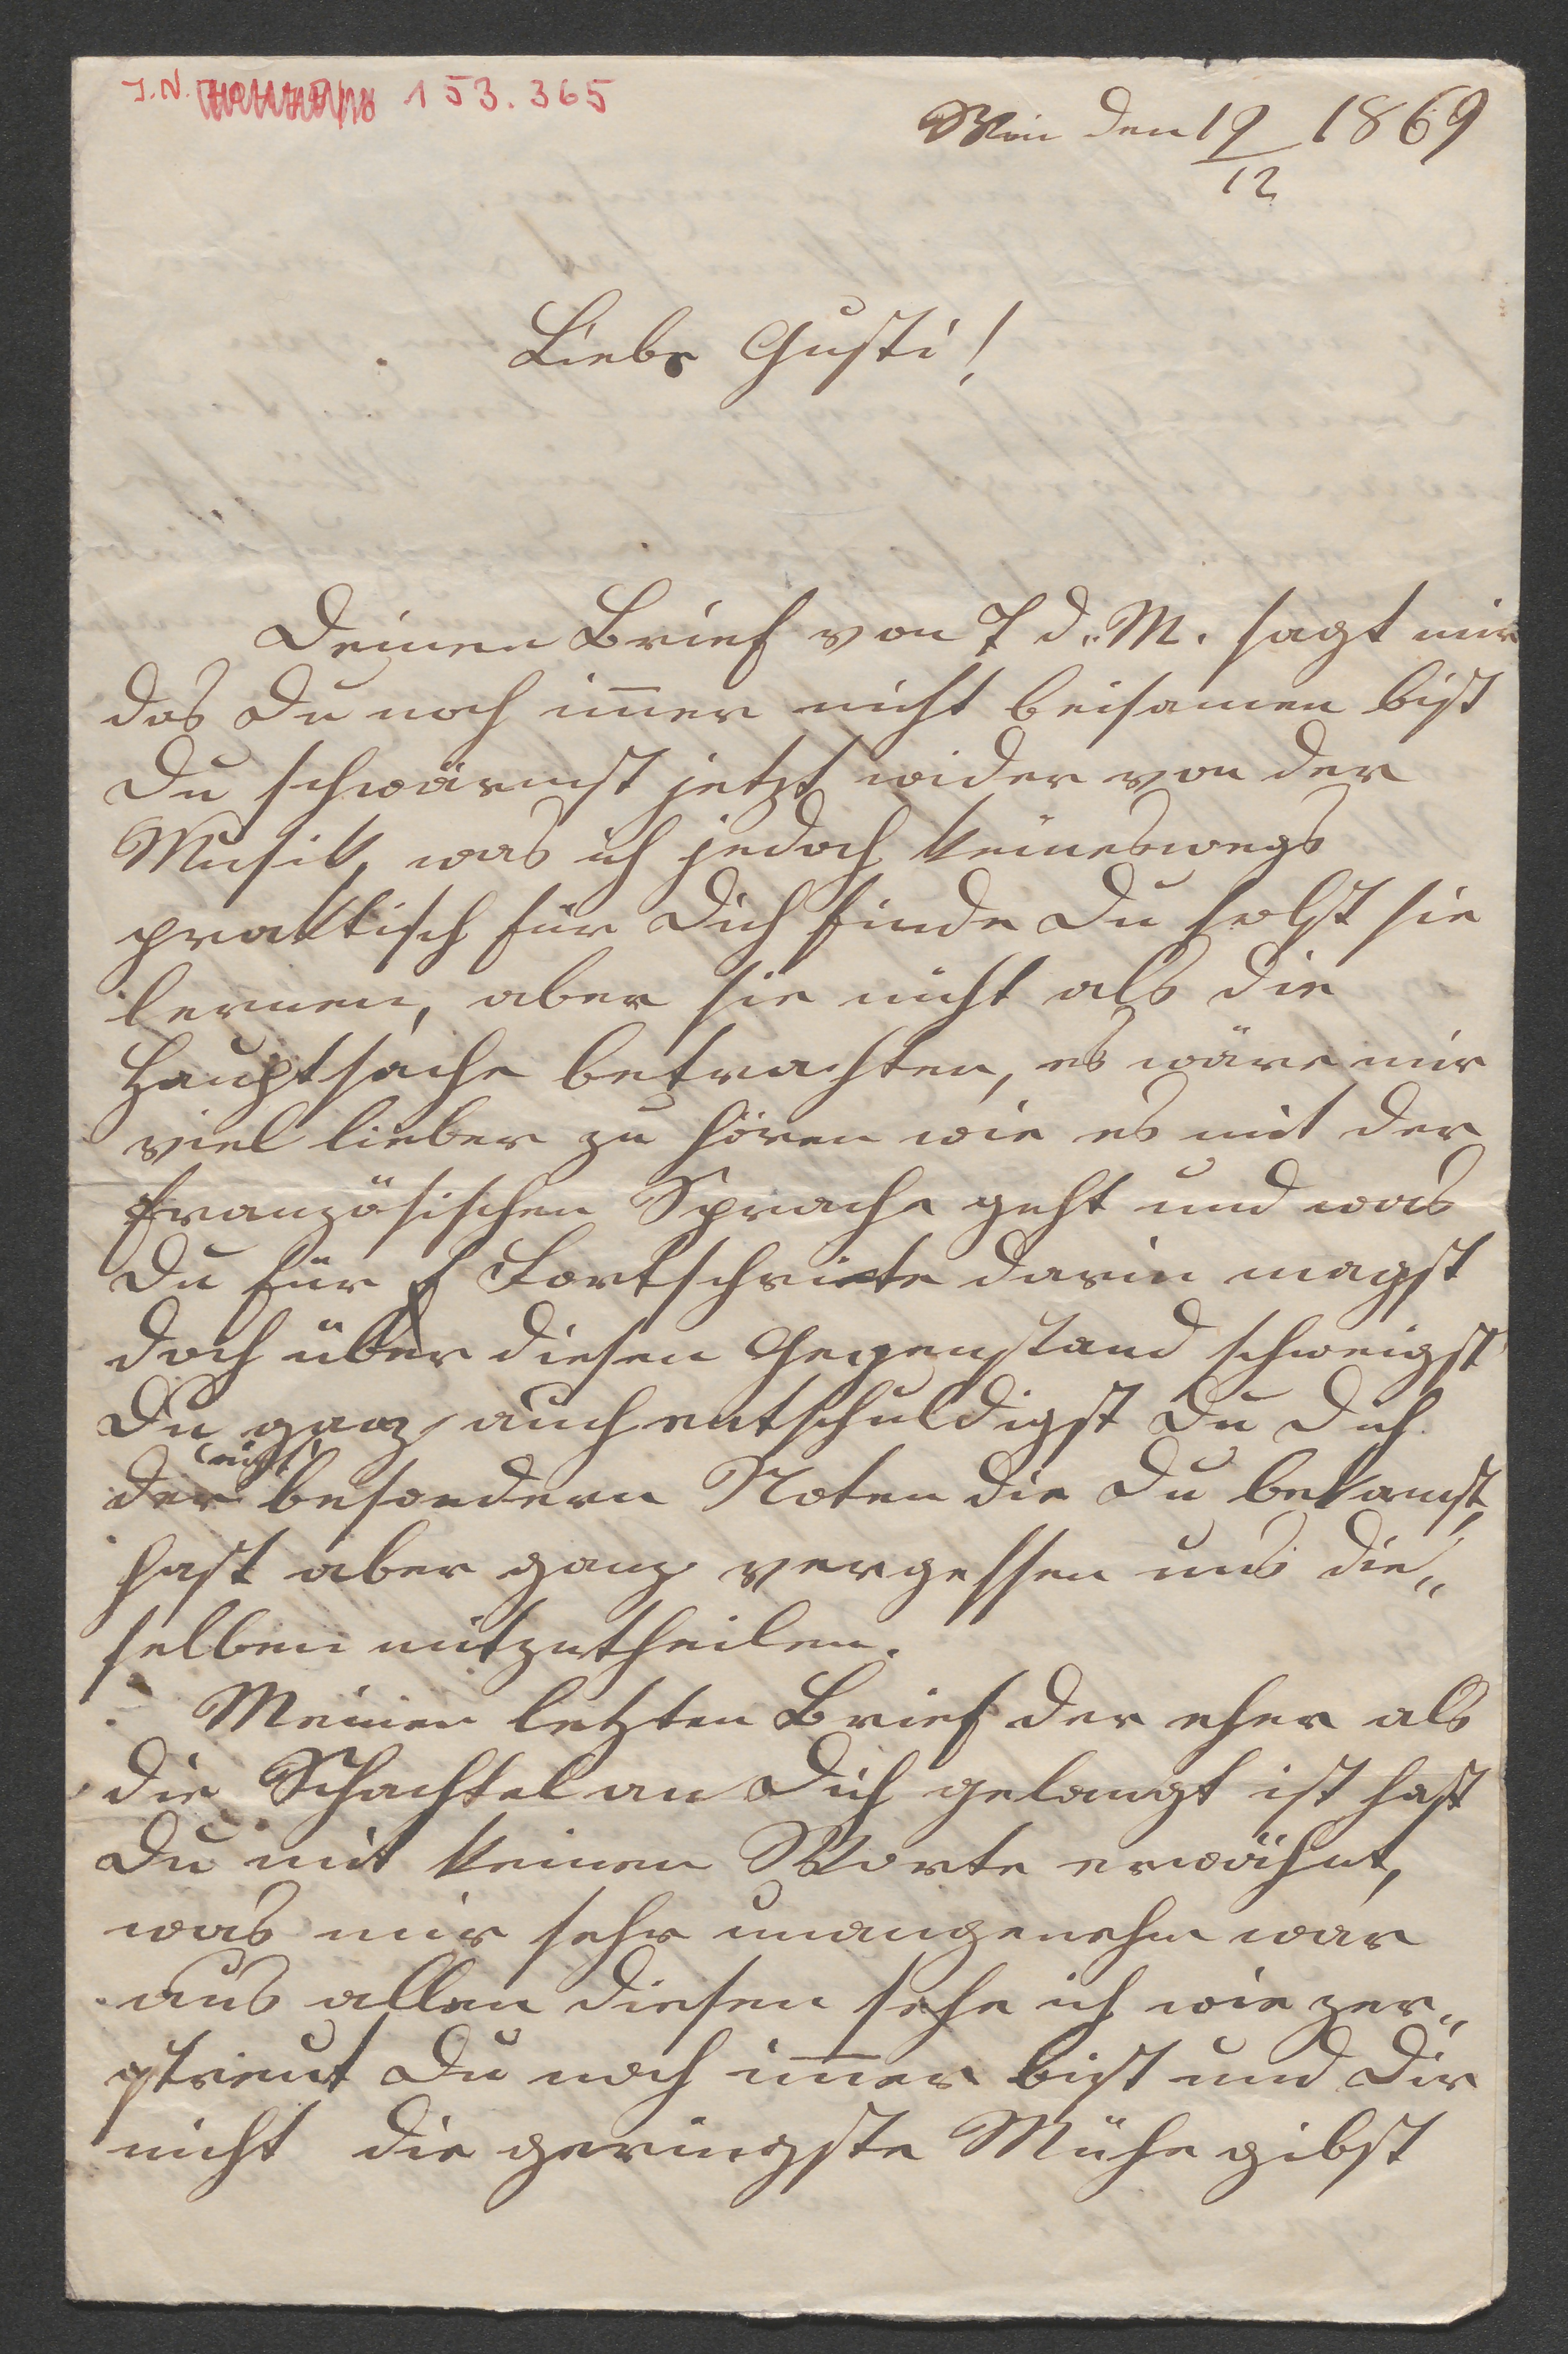 J.N. 153.365
Wien den 19/12 1869
Liebe Gusti!
Deinen Brief von 7 d. M. sagt mir
das Du noch im̅er nicht beisamen bist
Du schwärmst jetzt wider von der
Musik, was ich jedoch keineswegs
praktisch für Dich finde Du solst sie
lernen, aber sie nicht als die
Hauptsache betrachten, es wäre mir
viel lieber zu hören wie es mit der
französischen Sprache geht und was
Du für Fortschritte darin magst
doch über diesen Gegenstand schweigst
Du ganz, auch entschuldigst Du Dich
(nicht)
der besondern Noten die Du bekamst,
hast aber ganz vergessen uns die„
selben mitzutheilen.
Meinen letzten Brief der eher als
die Schachtel an Dich gelangt ist hast
Du mit keinen Worte erwähnt,
was mir sehr unangenehm war
aus allen diesen sehe ich wie zer„
streut Du noch im̅er bist und Dir
nicht die geringste Mühe gibst